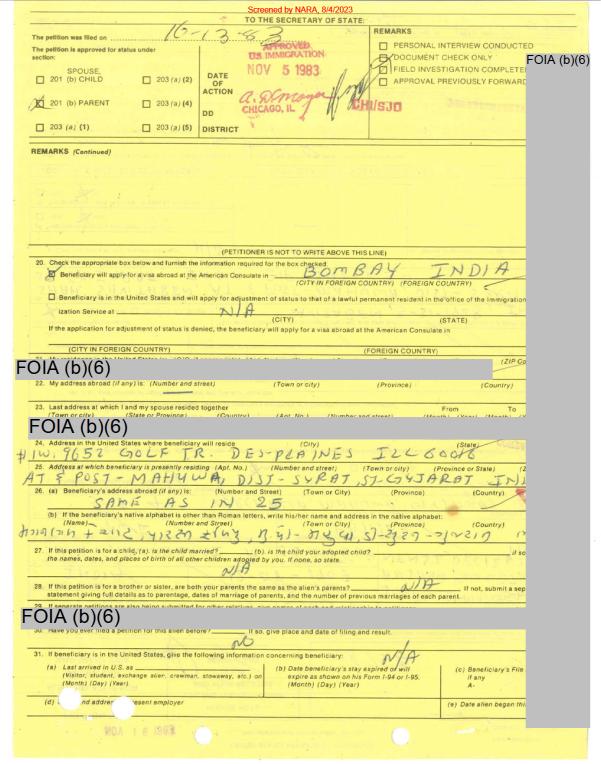 Screened by NARA, 8/4/2023
TO THE SECRETARY OF STATE:
The petition was filed on 10-13-83
The petition is approved for status under section:
SPOUSE,
201 (b) CHILD
203 (a) (2)
201 (b) PARENT
203 (a) (4)
203 (a) (1)
203 (a) (5)
DATE OF ACTION
DD
DISTRICT
APPROVED
U.S. IMMIGRATION
NOV 5 1983
CHICAGO, IL
REMARKS
PERSONAL INTERVIEW CONDUCTED
DOCUMENT CHECK ONLY
FIELD INVESTIGATION COMPLETE
APPROVAL PREVIOUSLY FORWARD
CHI/SJO
FOIA (b)(6)
REMARKS (Continued)
(PETITIONER IS NOT TO WRITE ABOVE THIS LINE)
20. Check the appropriate box below and furnish the information required for the box checked
Beneficiary will apply for a visa abroad at the American Consulate in BOMBAY INDIA
(CITY IN FOREIGN COUNTRY) (FOREIGN COUNTRY)
Beneficiary is in the United States and will apply for adjustment of status to that of a lawful permanent resident in the office of the Immigration
ization Service at N/A
(CITY) (STATE)
If the application for adjustment of status is denied, the beneficiary will apply for a visa abroad at the American Consulate in
(CITY IN FOREIGN COUNTRY) (FOREIGN COUNTRY)
FOIA (b)(6)
22. My address abroad (if any) is: (Number and street) (Town or city) (Province) (Country)
23. Last address at which I and my spouse resided together From To
FOIA (b)(6)
24. Address in the United States where beneficiary will reside (City) (State)
# 1W. 9652 GOLF TR. DES-PLAINES ILL 60016
25. Address at which beneficiary is presently residing (Apt. No.) (Number and street) (Town or city) (Province or State)
AT & POST - MAHUWA, DIST - SURAT, ST. GUJARAT IND
26. (a) Beneficiary's address abroad (if any) is: (Number and Street) (Town or City) (Province) (Country)
SAME AS IN 25
(b) If the beneficiary's native alphabet is other than Roman letters, write his/her name and address in the native alphabet:
(Name) (Number and Street) (Town or City) (Province) (Country)
27. If this petition is for a child, (a). is the child married? (b). is the child your adopted child? if so
the names, dates, and places of birth of all other children adopted by you. If none, so state.
N/A
28. If this petition is for a brother or sister, are both your parents the same as the alien's parents? N/A If not, submit a sep
statement giving full details as to parentage, dates of marriage of parents, and the number of previous marriages of each parent.
FOIA (b)(6)
30. Have you ever filed a petition for this alien before? If so, give place and date of filing and result.
NO
31. If beneficiary is in the United States, give the following information concerning beneficiary: N/A
(a) Last arrived in U.S. as
(Visitor, student, exchange alien, crewman, stowaway, etc.) on
(Month) (Day) (Year)
(b) Date beneficiary's stay expired or will
expire as shown on his Form I-94 or I-95.
(Month) (Day) (Year)
(c) Beneficiary's File
if any
A-
(e) Date alien began thi